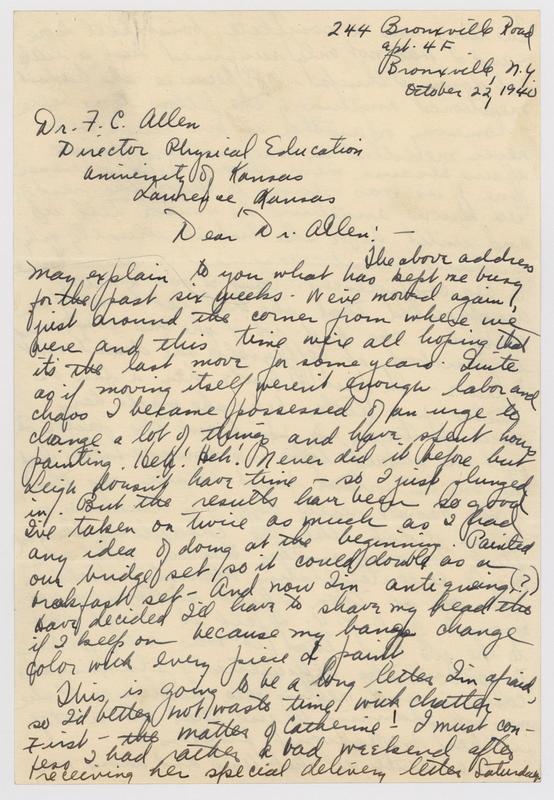 244 Bronxville Road
apt. 4F
Bronxville, N.Y.
October 22, 1940
Dr. F. C. Allen
Director Physical Education
University of Kansas
Lawrence, Kansas
Dear Dr. Allen: —
The above address
may explain to you what has kept me busy
for the past six weeks. We've moved again,
just around the corner from where we
were and this time we're all hoping that
it's the last move for some years. Quite
as if moving itself weren't enough labor and
chaos I became possessed of an urge to
change a lot of things and have spent hours
painting. Heh! Heh! Never did it before but
Leigh doesn't have time — so I just plunged
in. But the results have been so good
I've taken on twice as much as I had
any idea of doing at the beginning. Painted
our bridge set so it could double as a
breakfast set — And now I'm antiquing (?)
Have decided I'd have to shave my head tho
if I keep on because my bangs change
color with every piece I paint
This is going to be a long letter I'm afraid,
so I'd better not waste time with chatter
First — the matter of Catherine! I must con-
fess I had rather a bad weekend after
receiving her special delivery letter Saturday.